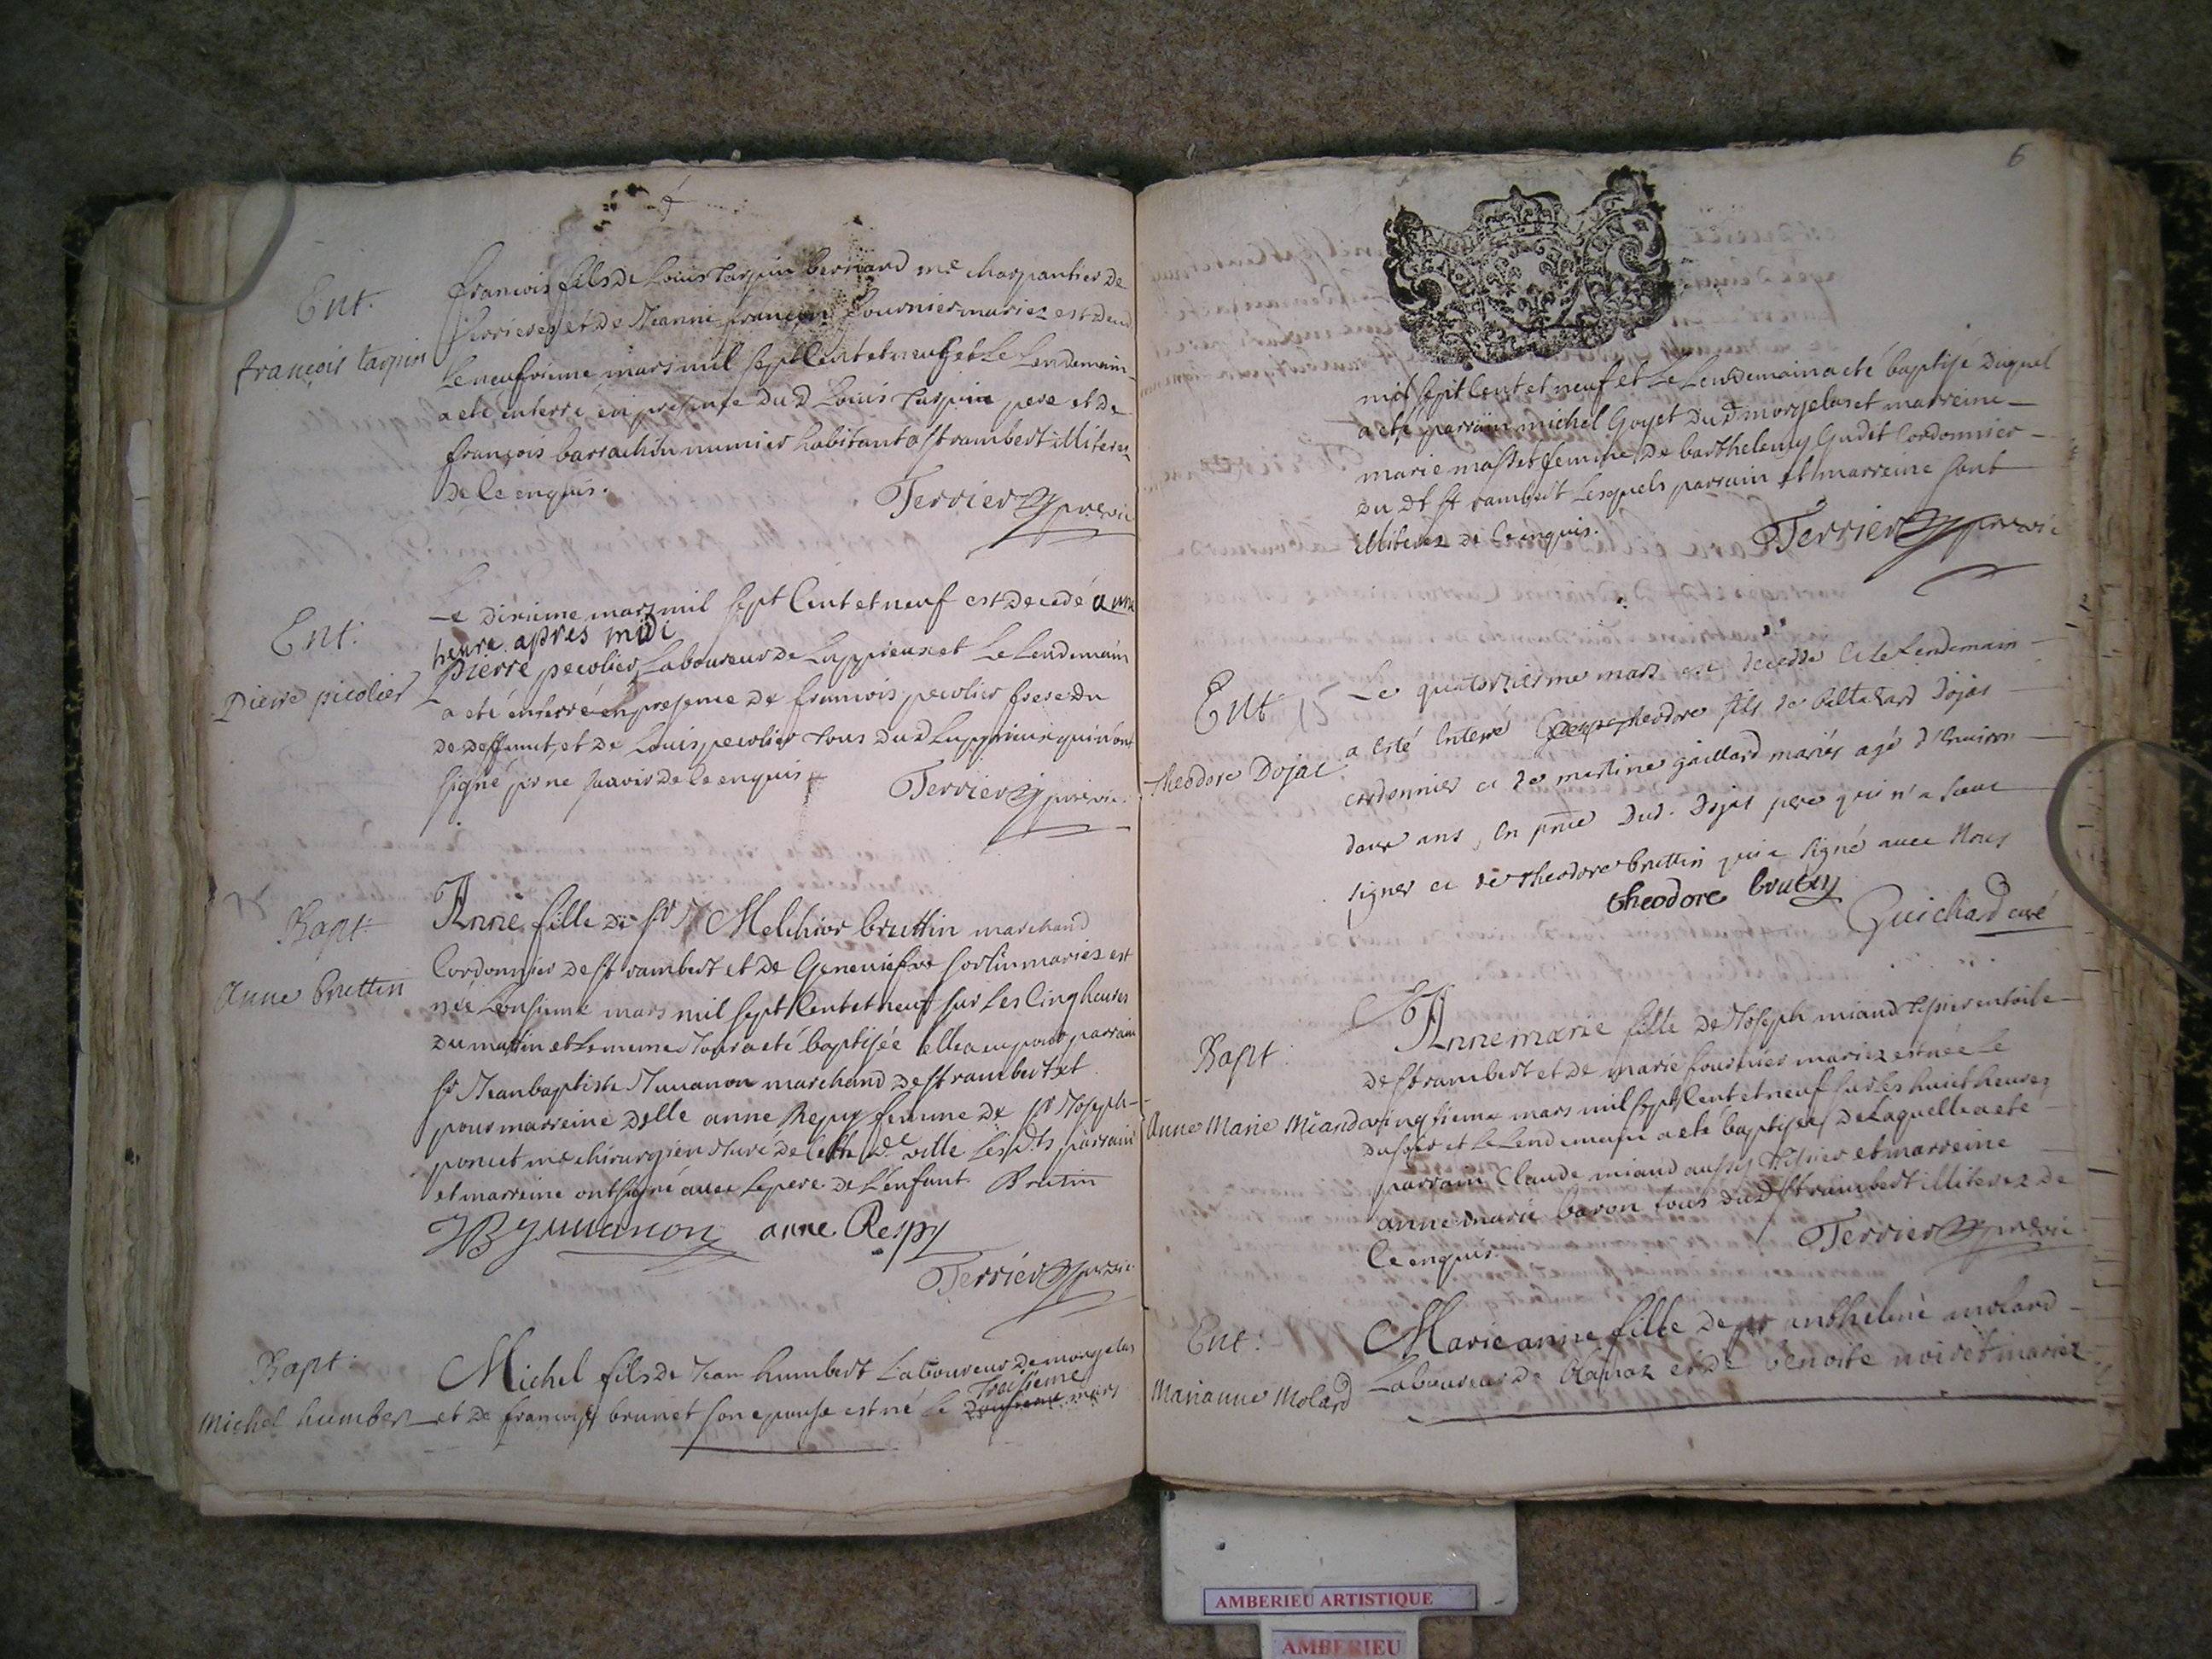 Ent.
françois taquin
françois fils de Louis Tarpin bernard me charpantier de
et de Jeanne françoise fournier mariez est deced
Le neufvieme mars mil sept Cent et neuf et Le Lendemain
a eté enterré en presence du d Louis Tarpin pere et de
françois barrachin munier habitant a st rambert illiterez
de ce enquis.
Terrier ptre vic
Ent.
Pierre picolier
Le dixieme mars mil sept Cent et neuf est decedé a une
heure apres midi
pierre pecolier Laboureur de Luppieux et Le Lendemain
a eté enterré en presence de francois pecolier frere du
de deffunt, et de Louis pecolier tous du d Luppieux qui n'ont
signé pr ne scavoir de ce enquis
Terrier ptre vic.
Bapt
Anne bruttin
Anne fille de sr J Melchior bruttin marchand
Cordonnier de st rambert et de Geneviefve sorlin mariez est
née Lonsieme mars mil sept Cent et neuf sur Les Cinq heures
du matin et Le meme Jour a eté baptisée elle a eu pour parrain
sr Jean baptiste Juvanon marchand de st rambert et
pour marreine delle anne Respy femme de sr Joseph
poncet me chirurgien Juré de Cette de ville Lesdts parrain
et marreine ont signé avec Le pere de L'enfant. Brutin
JB Juvanon anne Respy
Terrier ptre vic
Bapt.
Michel humbert
Michel fils de Jean humbert Laboureur de morgelas
et de francoise brunet son epouse est né le Treisieme
Dousieme mars
6
mil sept Cent et neuf et Le Lendemain a eté baptisé duquel
a eté parrain michel Goyet dud morgelas et marreine
marie masset femme de barthelemy Gudet Cordonnier
du dt st rambert Lesquels parrain et marreine sont
illiterez de ce enquis.
Terrier ptre vic
Ent
theodore Dojat
Le quatorzieme mars est decedé et le Lendemain
a esté Enterré theodore fils de baltazard Dojat
cordonnier et de martine gaillard mariés agé d'Environ
douze ans, En pnce dud. Dojat pere qui n'a sceu
signer et de theodore bruttin qui a signé avec Nous
theodore brutin
Guichard curé
Bapt
Anne Marie Miand
Anne marie fille de Joseph miand tissier en toile
de st rambert et de marie fournier mariez est née Le
vingtieme mars mil sept Cent et neuf sur Les huict heures
du soir et Le Lendemain a eté baptisée, de Laquelle a eté
parrain Claude miand aussy tissier et marreine
anne marie baron tous du d st rambert illiterez de
Ce enquis.
Terrier ptre vic
Ent.
Marianne Molard
Marie anne fille de anthelme molard
Laboureur de blanaz et de benoite noiret mariez
AMBERIEU ARTISTIQUE
AMBERIEU